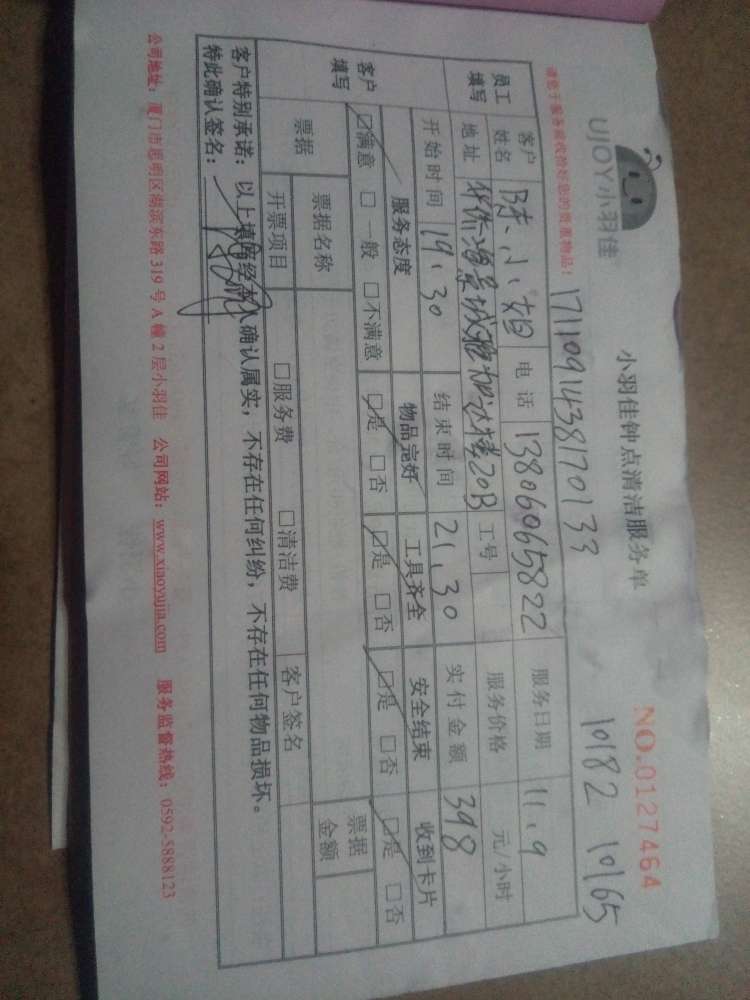 UJOY小羽佳
小羽佳钟点清洁服务单
NO.0127464
请您于服务前收拾好您的贵重物品！
1711091438170133
10182 10165
员工填写
客户姓名 陈小姐 电话 13806065822 服务日期 11.9
地址 20B 工号 服务价格 元/小时
开始时间 19.30 结束时间 21.30 实付金额 398
客户填写
服务态度 物品完好 工具齐全 安全结束 收到卡片
☑满意 □一般 □不满意 ☑是 □否 ☑是 □否 ☑是 □否 ☑是 □否
票据
票据名称 票据金额
开票项目 □服务费 □清洁费 客户签名
客户特别承诺：以上填写经本人确认属实，不存在任何纠纷，不存在任何物品损坏。
特此确认签名：
公司地址：厦门市思明区湖滨东路319号A幢2层小羽佳 公司网站：www.xiaoyujia.com 服务监督热线：0592-5888123